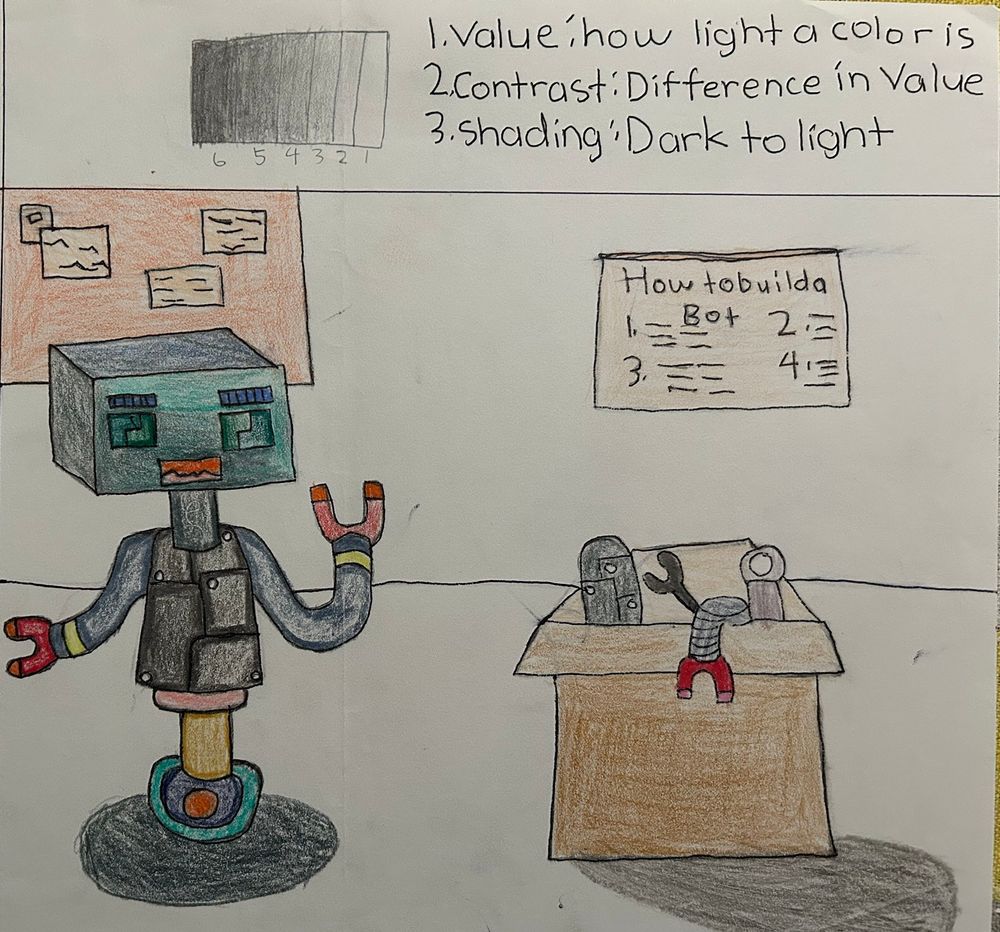 1. Value: how light a color is
2. Contrast: Difference in Value
3. shading: Dark to light
6 5 4 3 2 1
How to build a
Bot
1. 2.
3. 4.